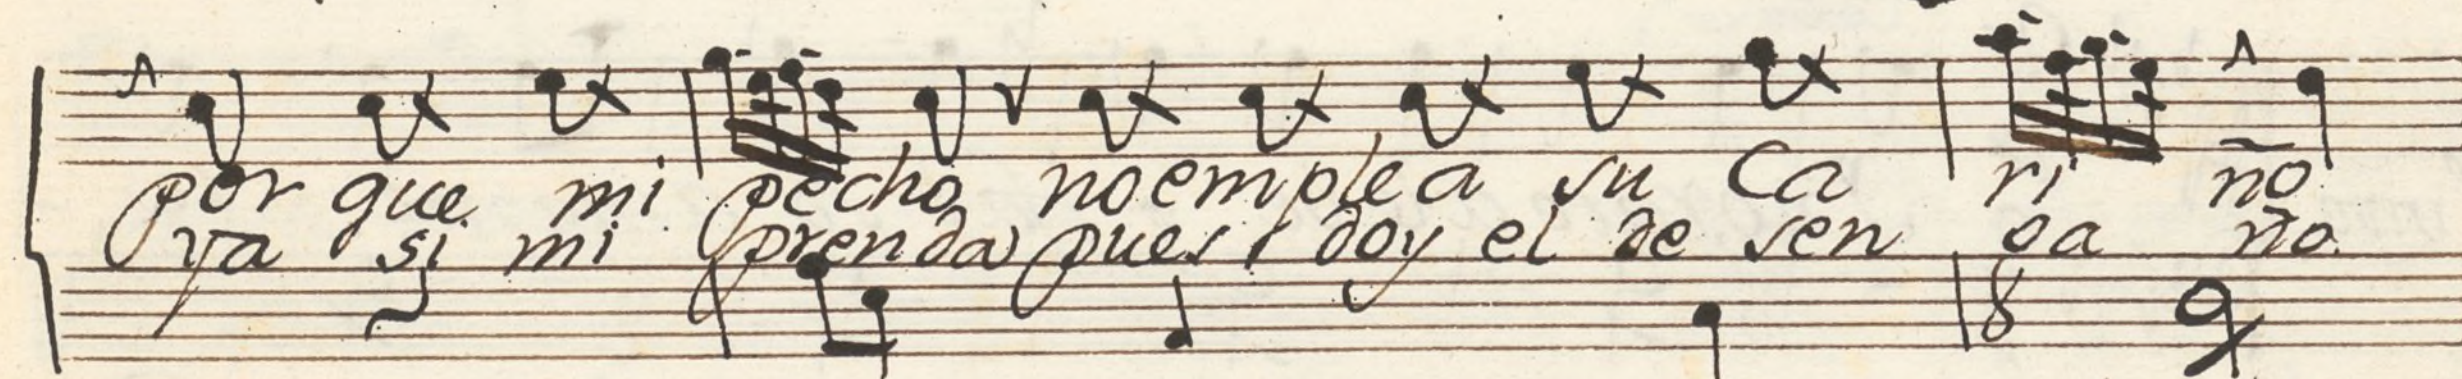 por que mi pecho no emplea su Ca ri ño
ya si mi prenda pues doy el de sen ga ño